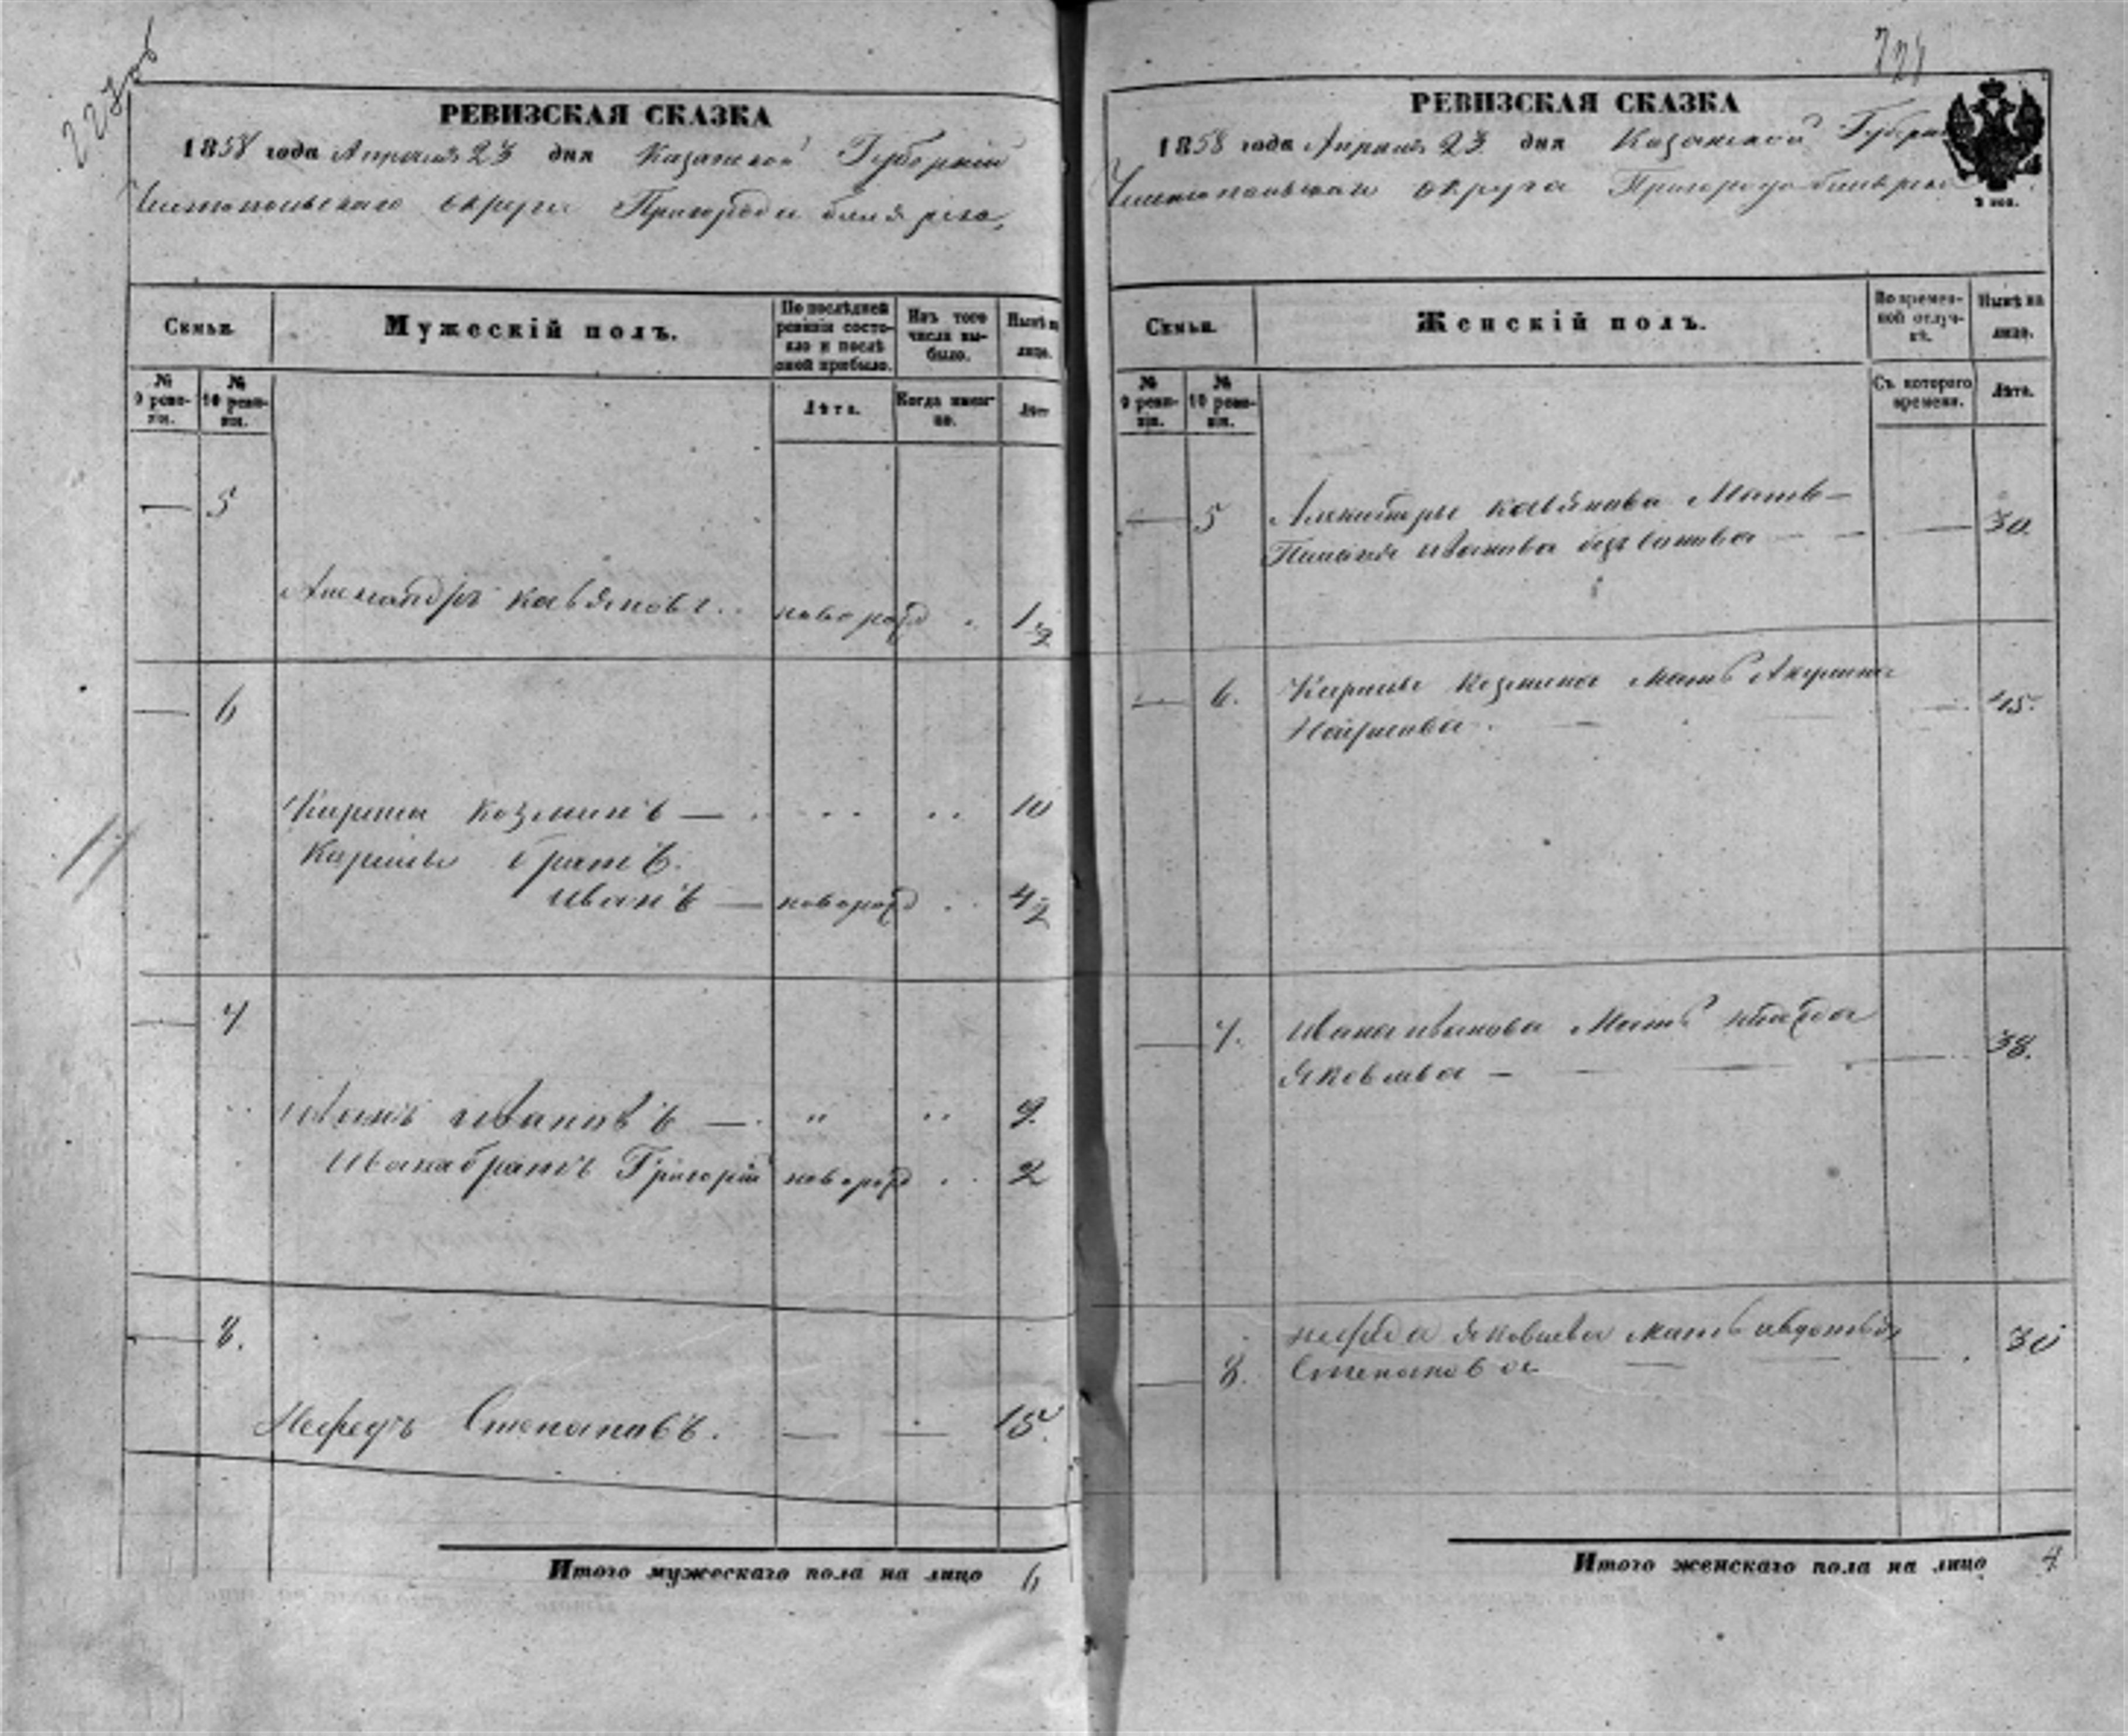 227об
РЕВИЗСКАЯ СКАЗКА
1858 года Апреля 23 дня Казанской Губернии
Чистопольскаго округа Пригорода Билярска,
Семьи.
Мужескій полъ.
По послѣдней ревизіи состояло и послѣ оной прибыло.
Изъ того числа выбыло.
Нынѣ на лицо.
№ 9 ревизіи.
№ 10 ревизіи.
Лѣта.
Когда именно.
Лѣт
— 5
Александръ Касьяновъ .. новорожд . 1 1/2
— 6
Карпъ Козминъ — 10
братъ
Иванъ — новорожд .. 4 1/2
— 7
Иванъ Ивановъ — . " .. 9.
Ивана братъ Григорій новорожд .. 2
— 8.
Нефедъ Степановъ. — — 15.
Итого мужескаго пола на лицо 6
РЕВИЗСКАЯ СКАЗКА
1858 года Апреля 23 дня Казанской Губерн
Чистопольскаго округа Пригорода Билярска
Семьи.
Женскій полъ.
Во временной отлучкѣ.
Нынѣ на лицо.
№ 9 ревизіи.
№ 10 ревизіи.
Съ котораго времени.
Лѣта.
— 5 Александры Касьянова Мать —
Ивановa — — — 30.
— 6. Козмина Мать Акулина
— — 45.
— 7. Ивана Иванова Мать
Яковлева — — — 38.
Нефеда Яковлева мать Авдотья
— 8. Степанова — — — . 30
Итого женскаго пола на лицо 4